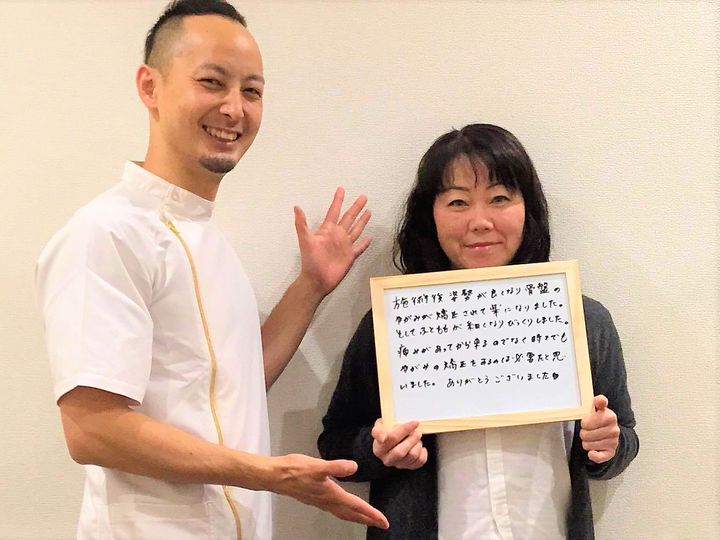 施術後 姿勢が良くなり骨盤の
ゆがみが矯正されて楽になりました。
そしてふとももが細くなりびっくりしました。
痛みがあってから来るのでなく時々でも
ゆがみの矯正をするのは必要だと思
いました。ありがとうございました